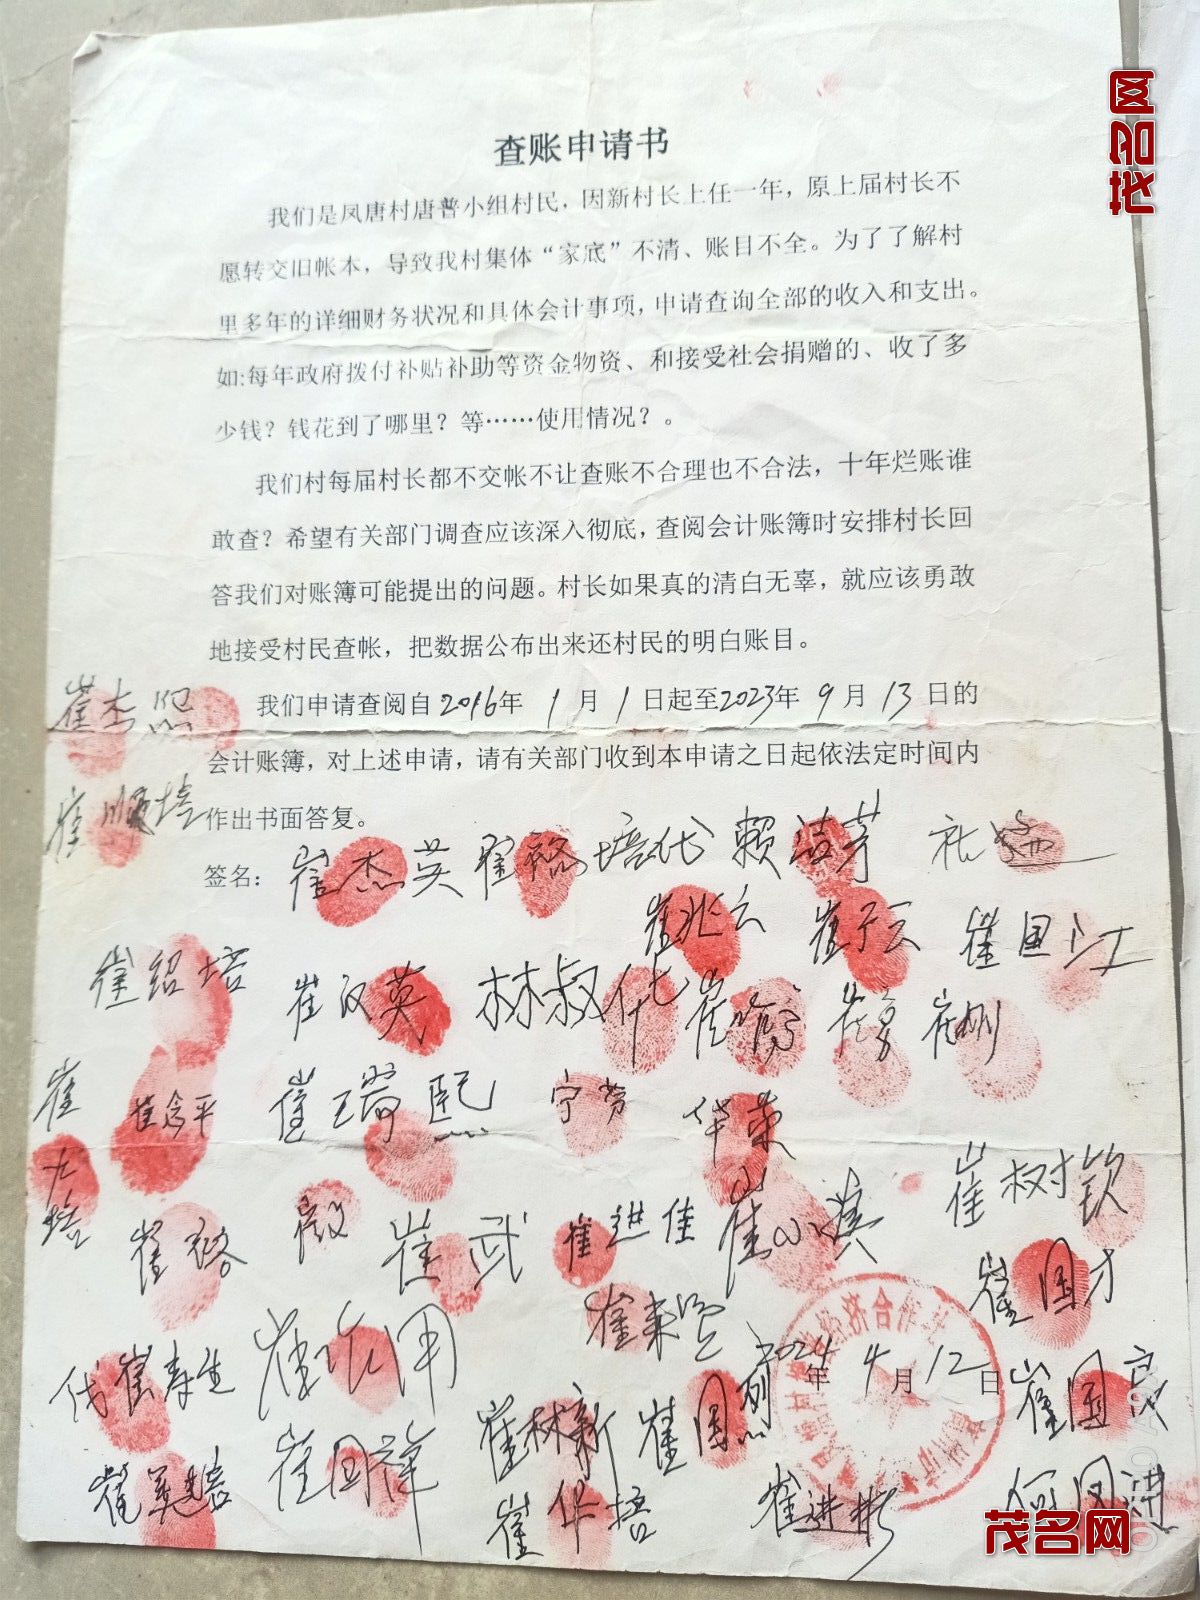 茂名网
查账申请书
我们是凤唐村唐普小组村民，因新村长上任一年，原上届村长不
愿转交旧帐本，导致我村集体“家底”不清、账目不全。为了了解村
里多年的详细财务状况和具体会计事项，申请查询全部的收入和支出。
如:每年政府拨付补贴补助等资金物资、和接受社会捐赠的、收了多
少钱？钱花到了哪里？等……使用情况？。
我们村每届村长都不交帐不让查账不合理也不合法，十年烂账谁
敢查？希望有关部门调查应该深入彻底，查阅会计账簿时安排村长回
答我们对账簿可能提出的问题。村长如果真的清白无辜，就应该勇敢
地接受村民查帐，把数据公布出来还村民的明白账目。
我们申请查阅自2016年 1月1日起至2023年9月13日的
会计账簿，对上述申请，请有关部门收到本申请之日起依法定时间内
作出书面答复。
崔杰熙
崔顺培
签名： 崔杰英 崔 培代
崔兆云 崔于云 崔国江
崔绍培 崔汉英 林叔代
崔念平 崔瑞熙 宁芳
华荣
崔树钦
崔武 崔进佳
崔国才
崔来
代崔寿生
2024年4月12日
经济合作社
崔国良
崔国祥 崔林新 崔国烈
崔华培 崔进彬
茂名网